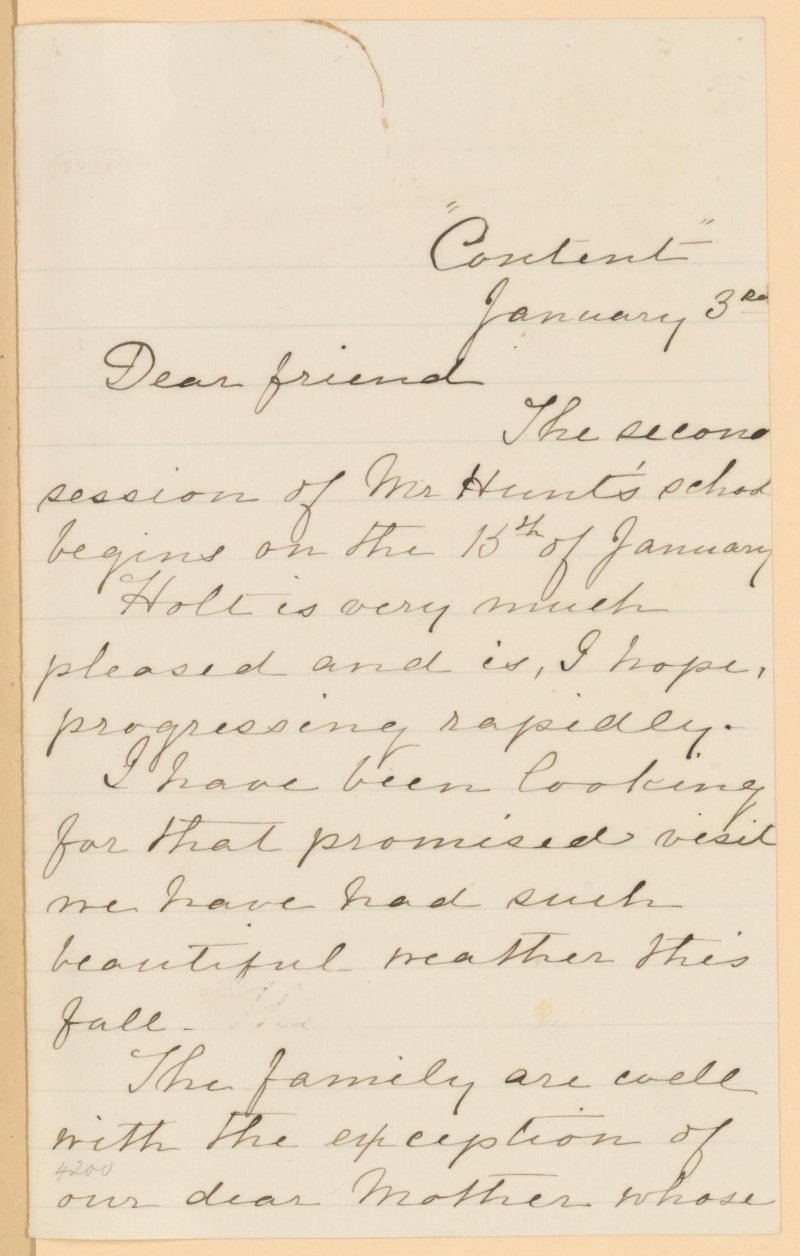 "Content"
January 3rd
Dear friend
The second
session of Mr Hunt's school
begins on the 15th of January
Holt is very much
pleased and is, I hope,
progressing rapidly.
I have been looking
for that promised visit
we have had such
beautiful weather this
fall -
The family are well
with the exception of
4200
our dear Mother whose